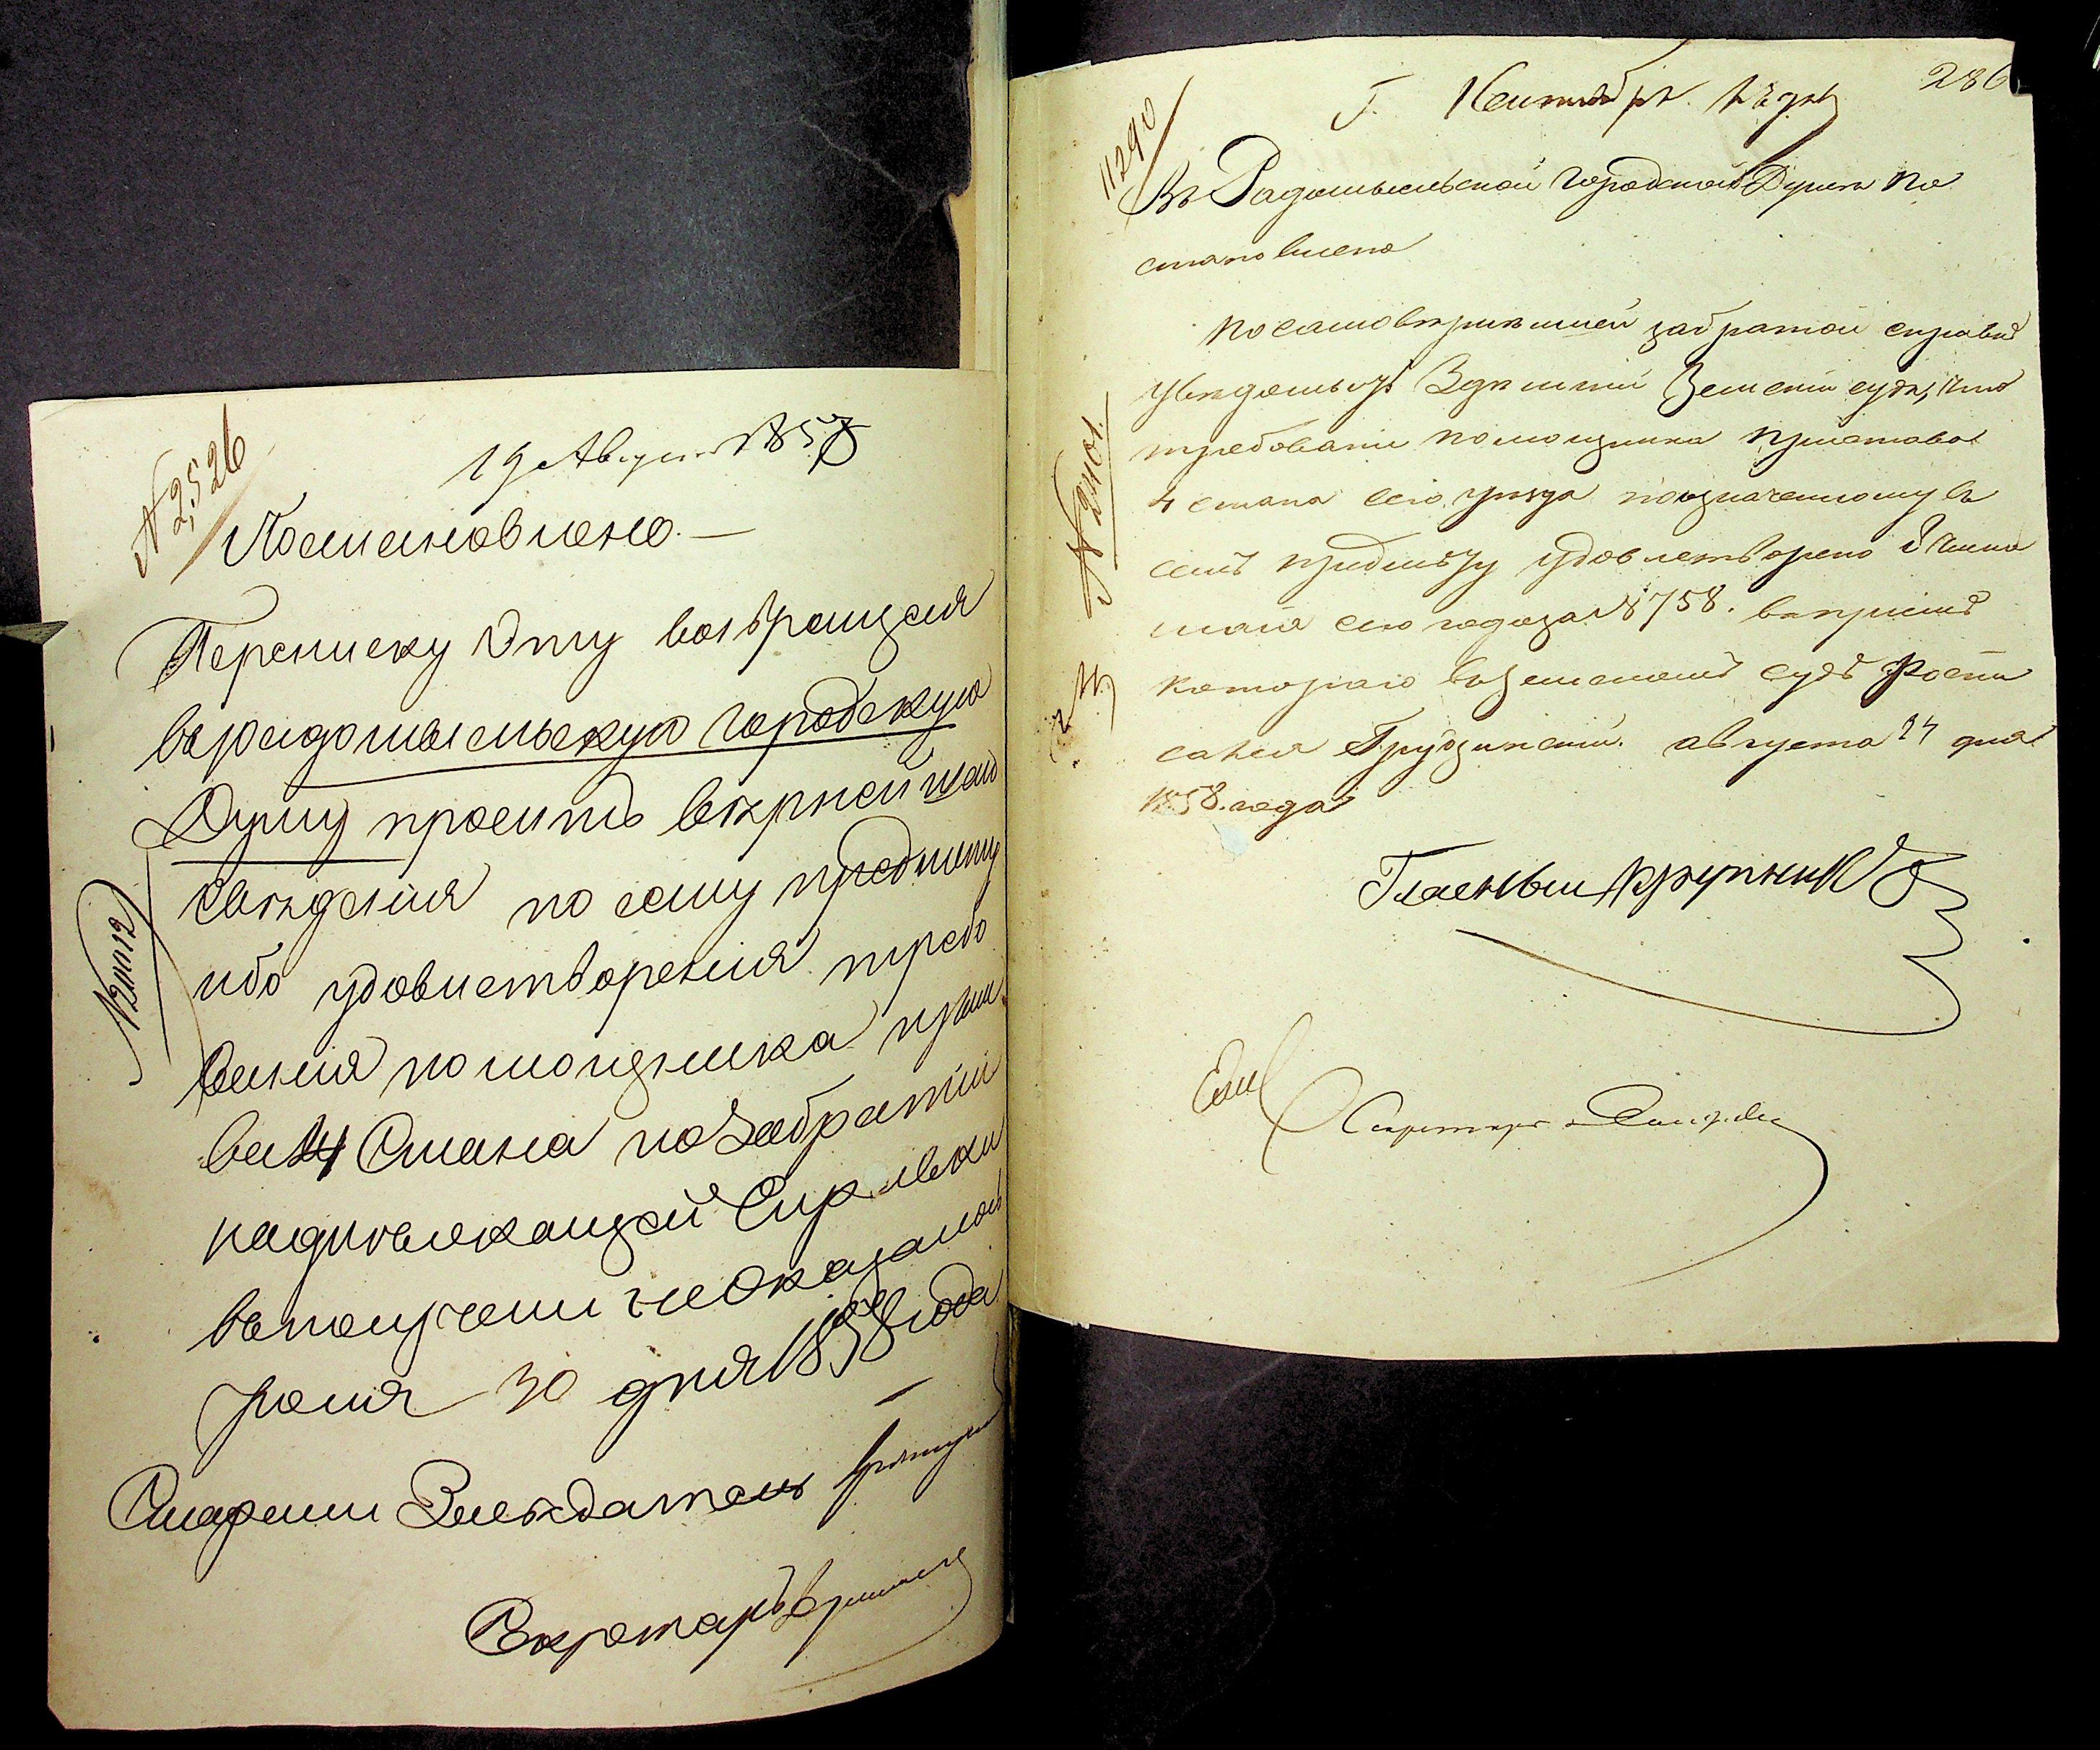 № 2,526
19 Августа 1858
Постановлено. —
Переписку эту возвращая
въ радомысльскую городскую
Думу проситъ вернейшаго
сведения по сему предмету
ибо удовлетворения требо
вания помощника приста
ва 4 Стана по забратіи
надлежащей Справки
не оказалось
30 дня 1858 года
Старший Заседатель
Секретарь
286
11290
Сентября
Въ Радомысльской Городской Думе по
становлено
по самовернейшей забратой справке
уведомить Здешний Земский судъ, что
требование помощника пристава
4 стана сего уезда по означенному въ
семъ предмету удовлетворено
мая сего года за № 8758. въ приеме
котораго въ земскомъ суде Роспи
сался Грудзинский. августа 24 дня
1858. года
№ 2401.
Гласный Крупник
Секретарь